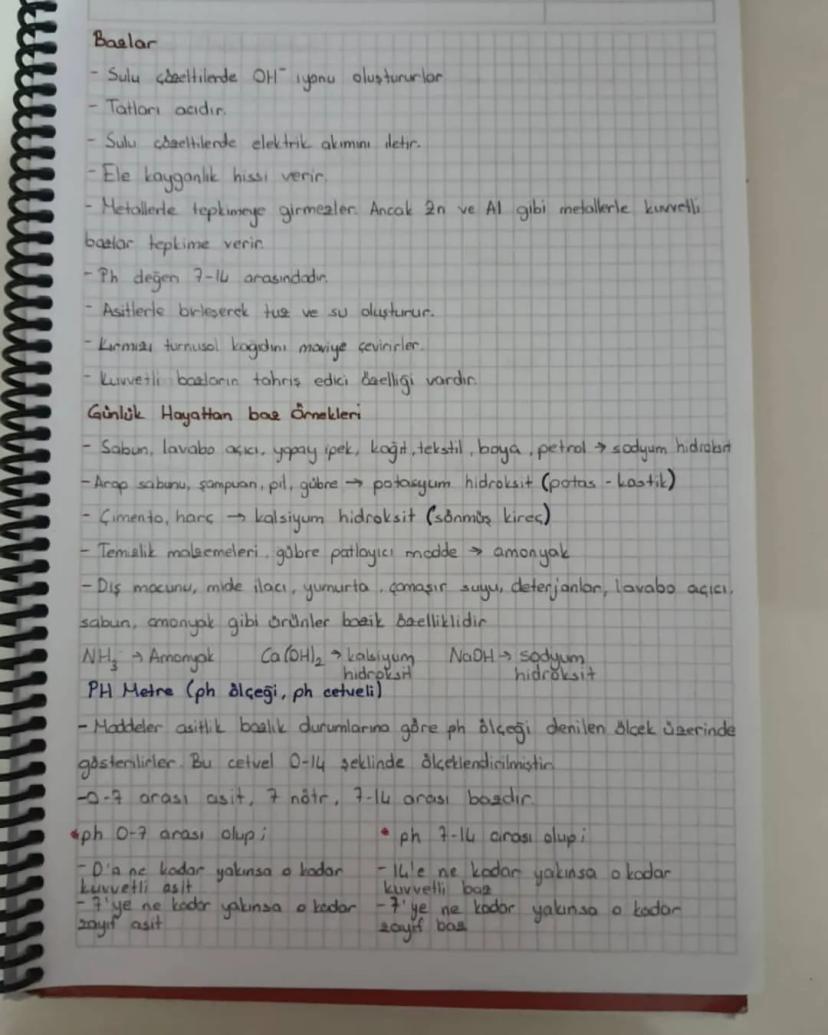 Bazlar
- Sulu çözeltilerde OH⁻ iyonu oluştururlar
- Tatları acıdır.
- Sulu çözeltilerde elektrik akımını iletir.
- Ele kayganlık hissi verir.
- Metallerle tepkimeye girmezler. Ancak Zn ve Al gibi metallerle kuvvetli
bazlar tepkime verir.
- Ph değeri 7-14 arasındadır.
- Asitlerle birleşerek tuz ve su oluşturur.
- Kırmızı turnusol kağıdını maviye çevirirler.
- Kuvvetli bazların tahriş edici özelliği vardır.
Günlük Hayattan baz Örnekleri
- Sabun, lavabo açıcı, yapay ipek, kağıt, tekstil, boya, petrol → sodyum hidroksit
- Arap sabunu, şampuan, pil, gübre → potasyum hidroksit (potas - kostik)
- Çimento, harç → kalsiyum hidroksit (sönmüş kireç)
- Temizlik malzemeleri, gübre patlayıcı madde → amonyak
- Diş macunu, mide ilacı, yumurta, çamaşır suyu, deterjanlar, lavabo açıcı,
sabun, amonyak gibi ürünler bazik özelliklidir
NH₃ → Amonyak Ca(OH)₂ → kalsiyum hidroksit NaOH → sodyum hidroksit
PH Metre (ph ölçeği, ph cetveli)
- Maddeler asitlik bazlık durumlarına göre ph ölçeği denilen ölçek üzerinde
gösterilirler. Bu cetvel 0-14 şeklinde ölçeklendirilmiştir.
- 0-7 arası asit, 7 nötr, 7-14 arası bazdır.
• ph 0-7 arası olup;
- 0'a ne kadar yakınsa o kadar
kuvvetli asit
- 7'ye ne kadar yakınsa o kadar
zayıf asit
• ph 7-14 arası olup;
- 14'e ne kadar yakınsa o kadar
kuvvetli baz
- 7'ye ne kadar yakınsa o kadar
zayıf baz